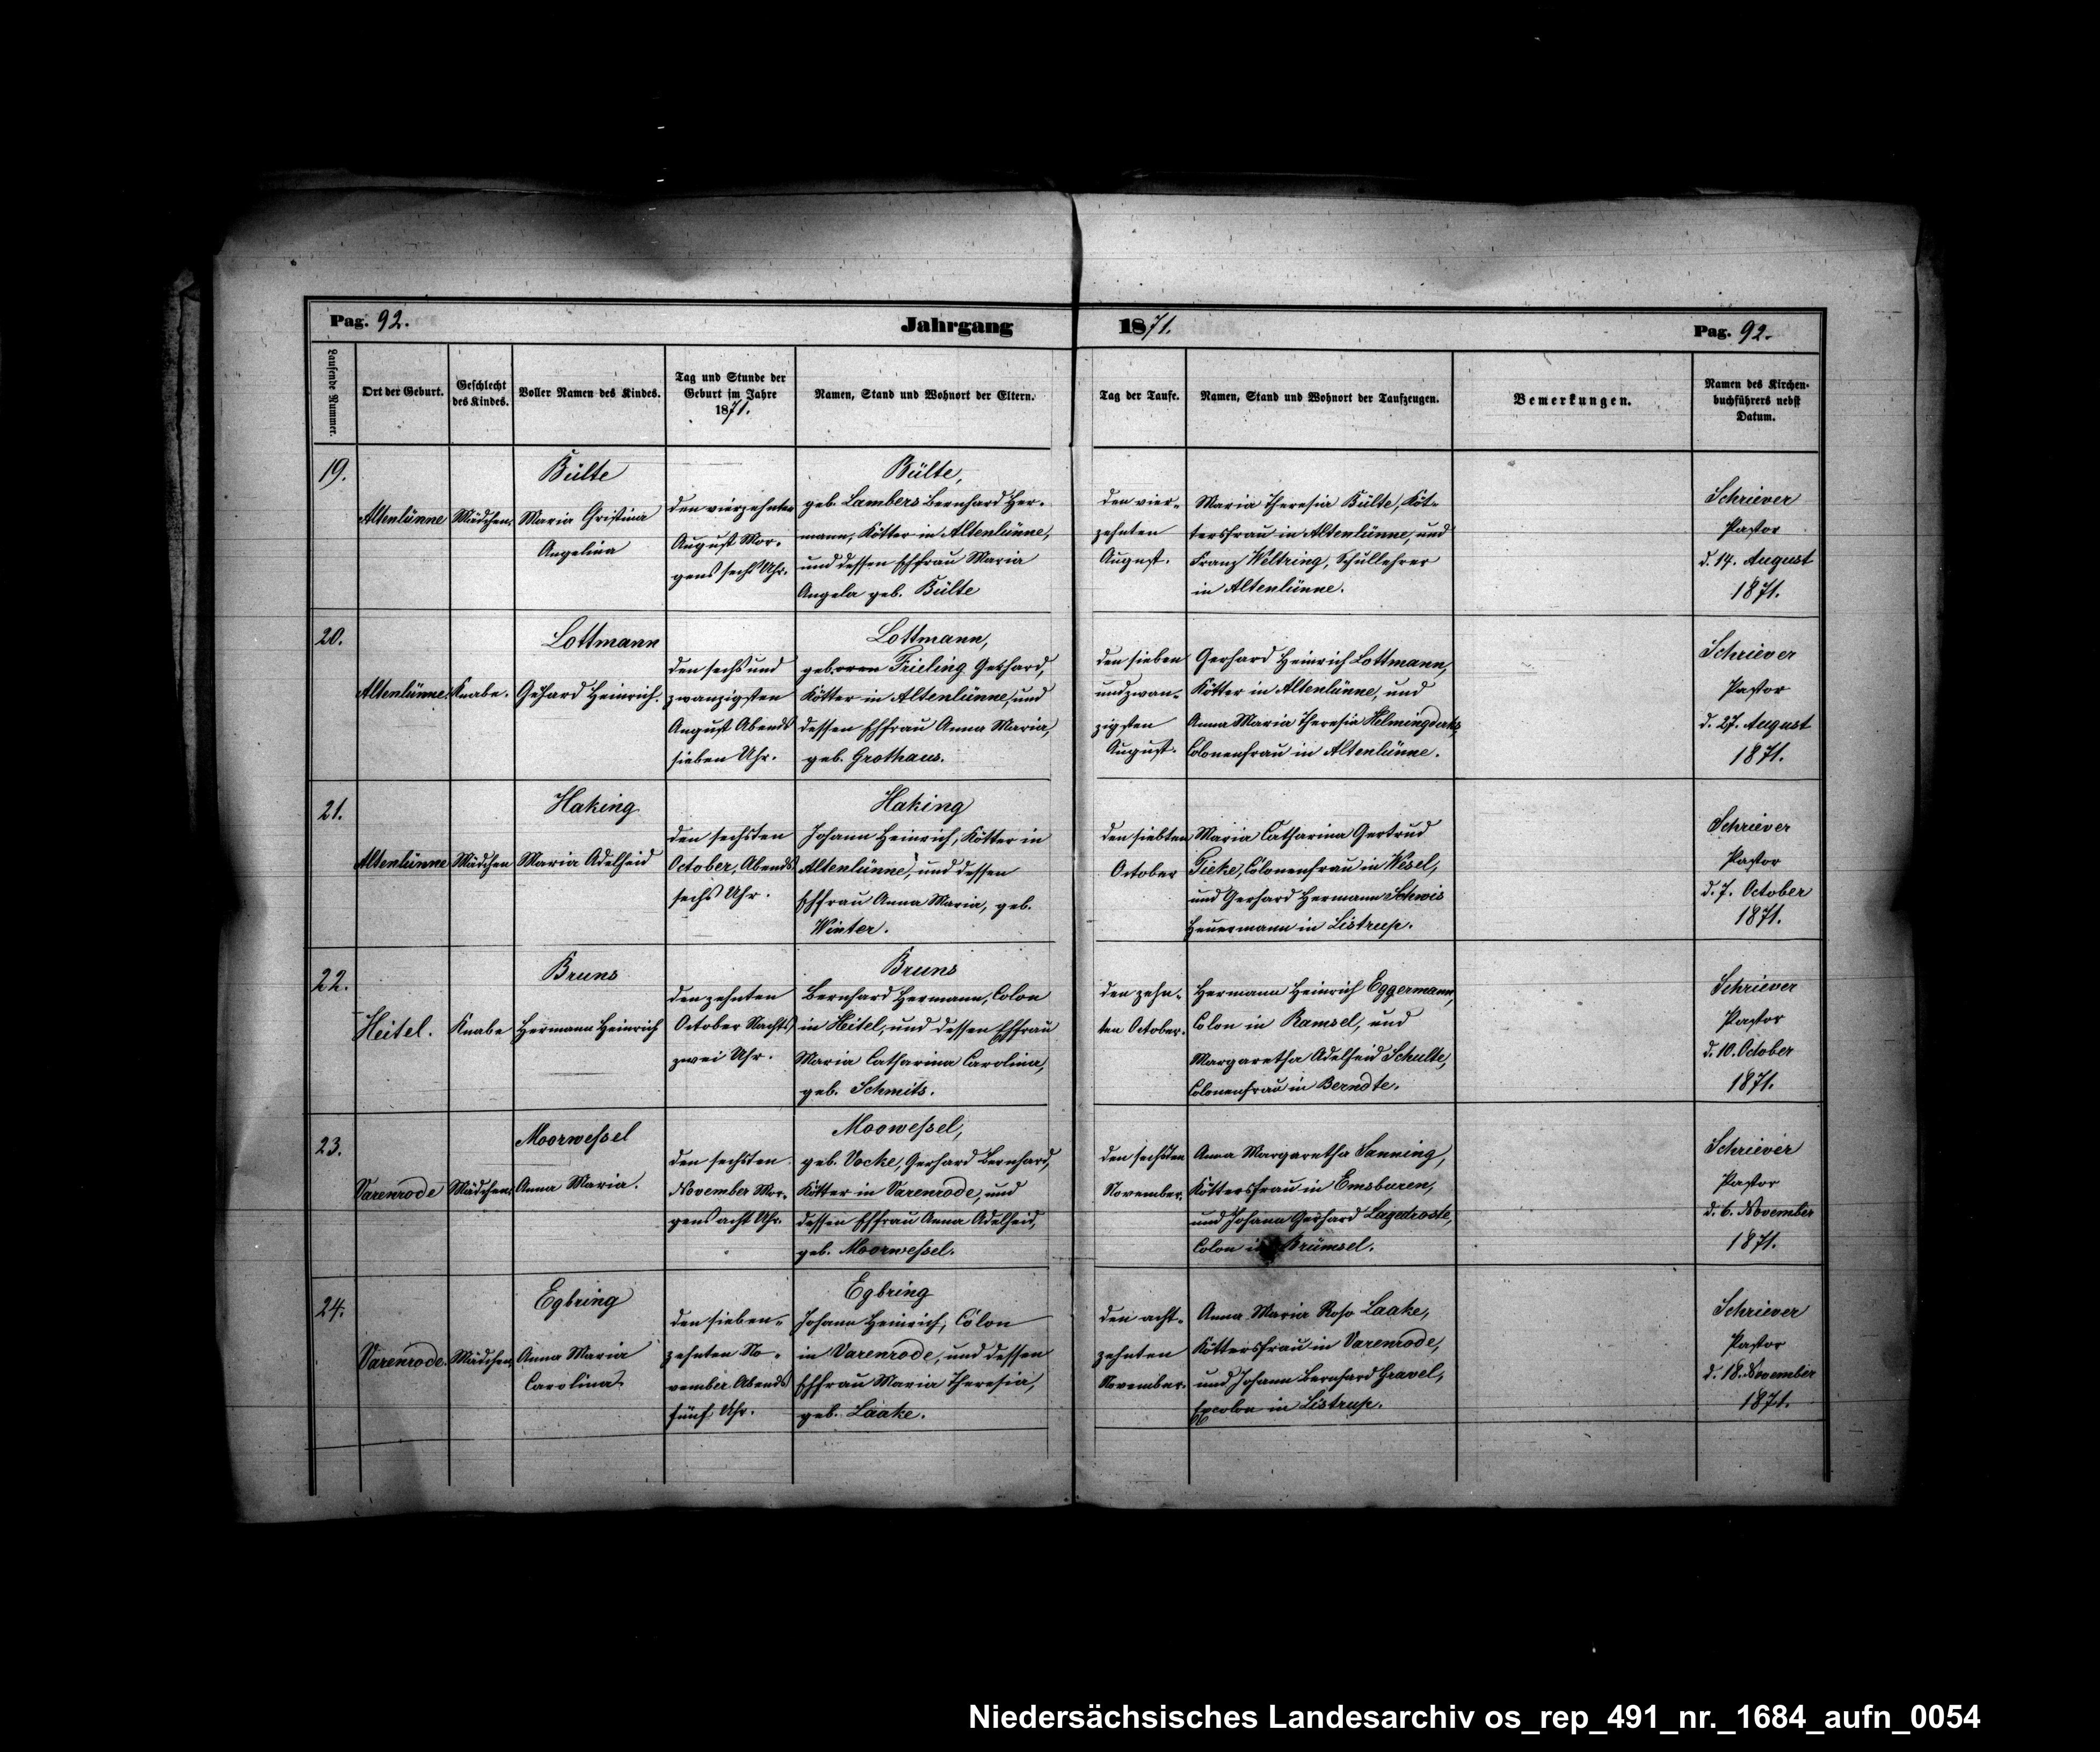 Pag. 92.
Jahrgang
1871.
Pag. 92.
Laufende Nummer.
Ort der Geburt.
Geschlecht
des Kindes.
Voller Namen des Kindes.
Tag und Stunde der
Geburt im Jahre
1871.
Namen, Stand und Wohnort der Eltern.
Tag der Taufe.
Namen, Stand und Wohnort der Taufzeugen.
Bemerkungen.
Namen des Kirchen-
buchführers nebst
Datum.
19.
Altenlünne
Mädchen.
Bülte
Maria Christina
Angelina
den vierzehnten
August Mor-
gens sechs Uhr.
Bülte,
geb. Lambers Bernhard Her-
mann, Kötter in Altenlünne,
und dessen Ehfrau Maria
Angela geb. Bülte
den vier-
zehnten
August.
Maria Theresia Bülte, Köt-
tersfrau in Altenlünne, und
Franz Weltring, Schullehrer
in Altenlünne.
Schriever
Pastor
d. 14. August
1871.
20.
Altenlünne.
Knabe.
Lottmann
Gerhard Heinrich.
den sechs und
zwanzigsten
August Abends
sieben Uhr.
Lottmann,
geboren Frieling Gerhard,
Kötter in Altenlünne, und
dessen Ehfrau Anna Maria,
geb. Grothaus.
den sieben
und zwan-
zigsten
August.
Gerhard Heinrich Lottmann,
Kötter in Altenlünne, und
Anna Maria Theresia
Colonenfrau in Altenlünne.
Schriever
Pastor
d. 27. August
1871.
21.
Altenlünne
Mädchen
Haking
Maria Adelheid
den sechsten
October, Abends
sechs Uhr.
Haking
Johann Heinrich, Kötter in
Altenlünne, und dessen
Ehfrau Anna Maria, geb.
Winter.
den siebten
October
Maria Catharina Gertrud
Tieke, Colonenfrau in Wesel,
und Gerhard Hermann Schwis
Heuermann in Listrup.
Schriever
Pastor
d. 7. October
1871.
22.
Heitel.
Knabe
Bruns
Hermann Heinrich
den zehnten
October Nachts
zwei Uhr.
Bruns
Bernhard Hermann, Colon
in Heitel, und dessen Ehfrau
Maria Catharina Carolina,
geb. Schmits.
den zehn-
ten October.
Hermann Heinrich Eggermann,
Colon in Ramsel, und
Margaretha Adelheid Schulte,
Colonenfrau in Berndte.
Schriever
Pastor
d. 10. October
1871.
23.
Varenrode
Mädchen.
Moorwessel
Anna Maria.
den sechsten
November Mor-
gens acht Uhr.
Moowessel,
geb. Vocke, Gerhard Bernhard,
Kötter in Varenrode, und
dessen Ehfrau Anna Adelheid,
geb. Moorwessel.
den sechsten
November.
Anna Margaretha Sanning,
Köttersfrau in Emsburen,
und Johann Gerhard Lagedroste,
Colon in Brümsel.
Schriever
Pastor
d. 6. November
1871.
24.
Varenrode.
Mädchen.
Egbring
Anna Maria
Carolina
den sieben-
zehnten No-
vember Abends
fünf Uhr.
Egbring
Johann Heinrich, Colon
in Varenrode, und dessen
Ehfrau Maria Theresia,
geb. Laake.
den acht-
zehnten
November.
Anna Maria Rosa Laake,
Köttersfrau in Varenrode,
und Johann Bernhard Gravel,
Excolon in Listrup.
Schriever
Pastor
d. 18. November
1871.
Niedersächsisches Landesarchiv os_rep_491_nr._1684_aufn_0054